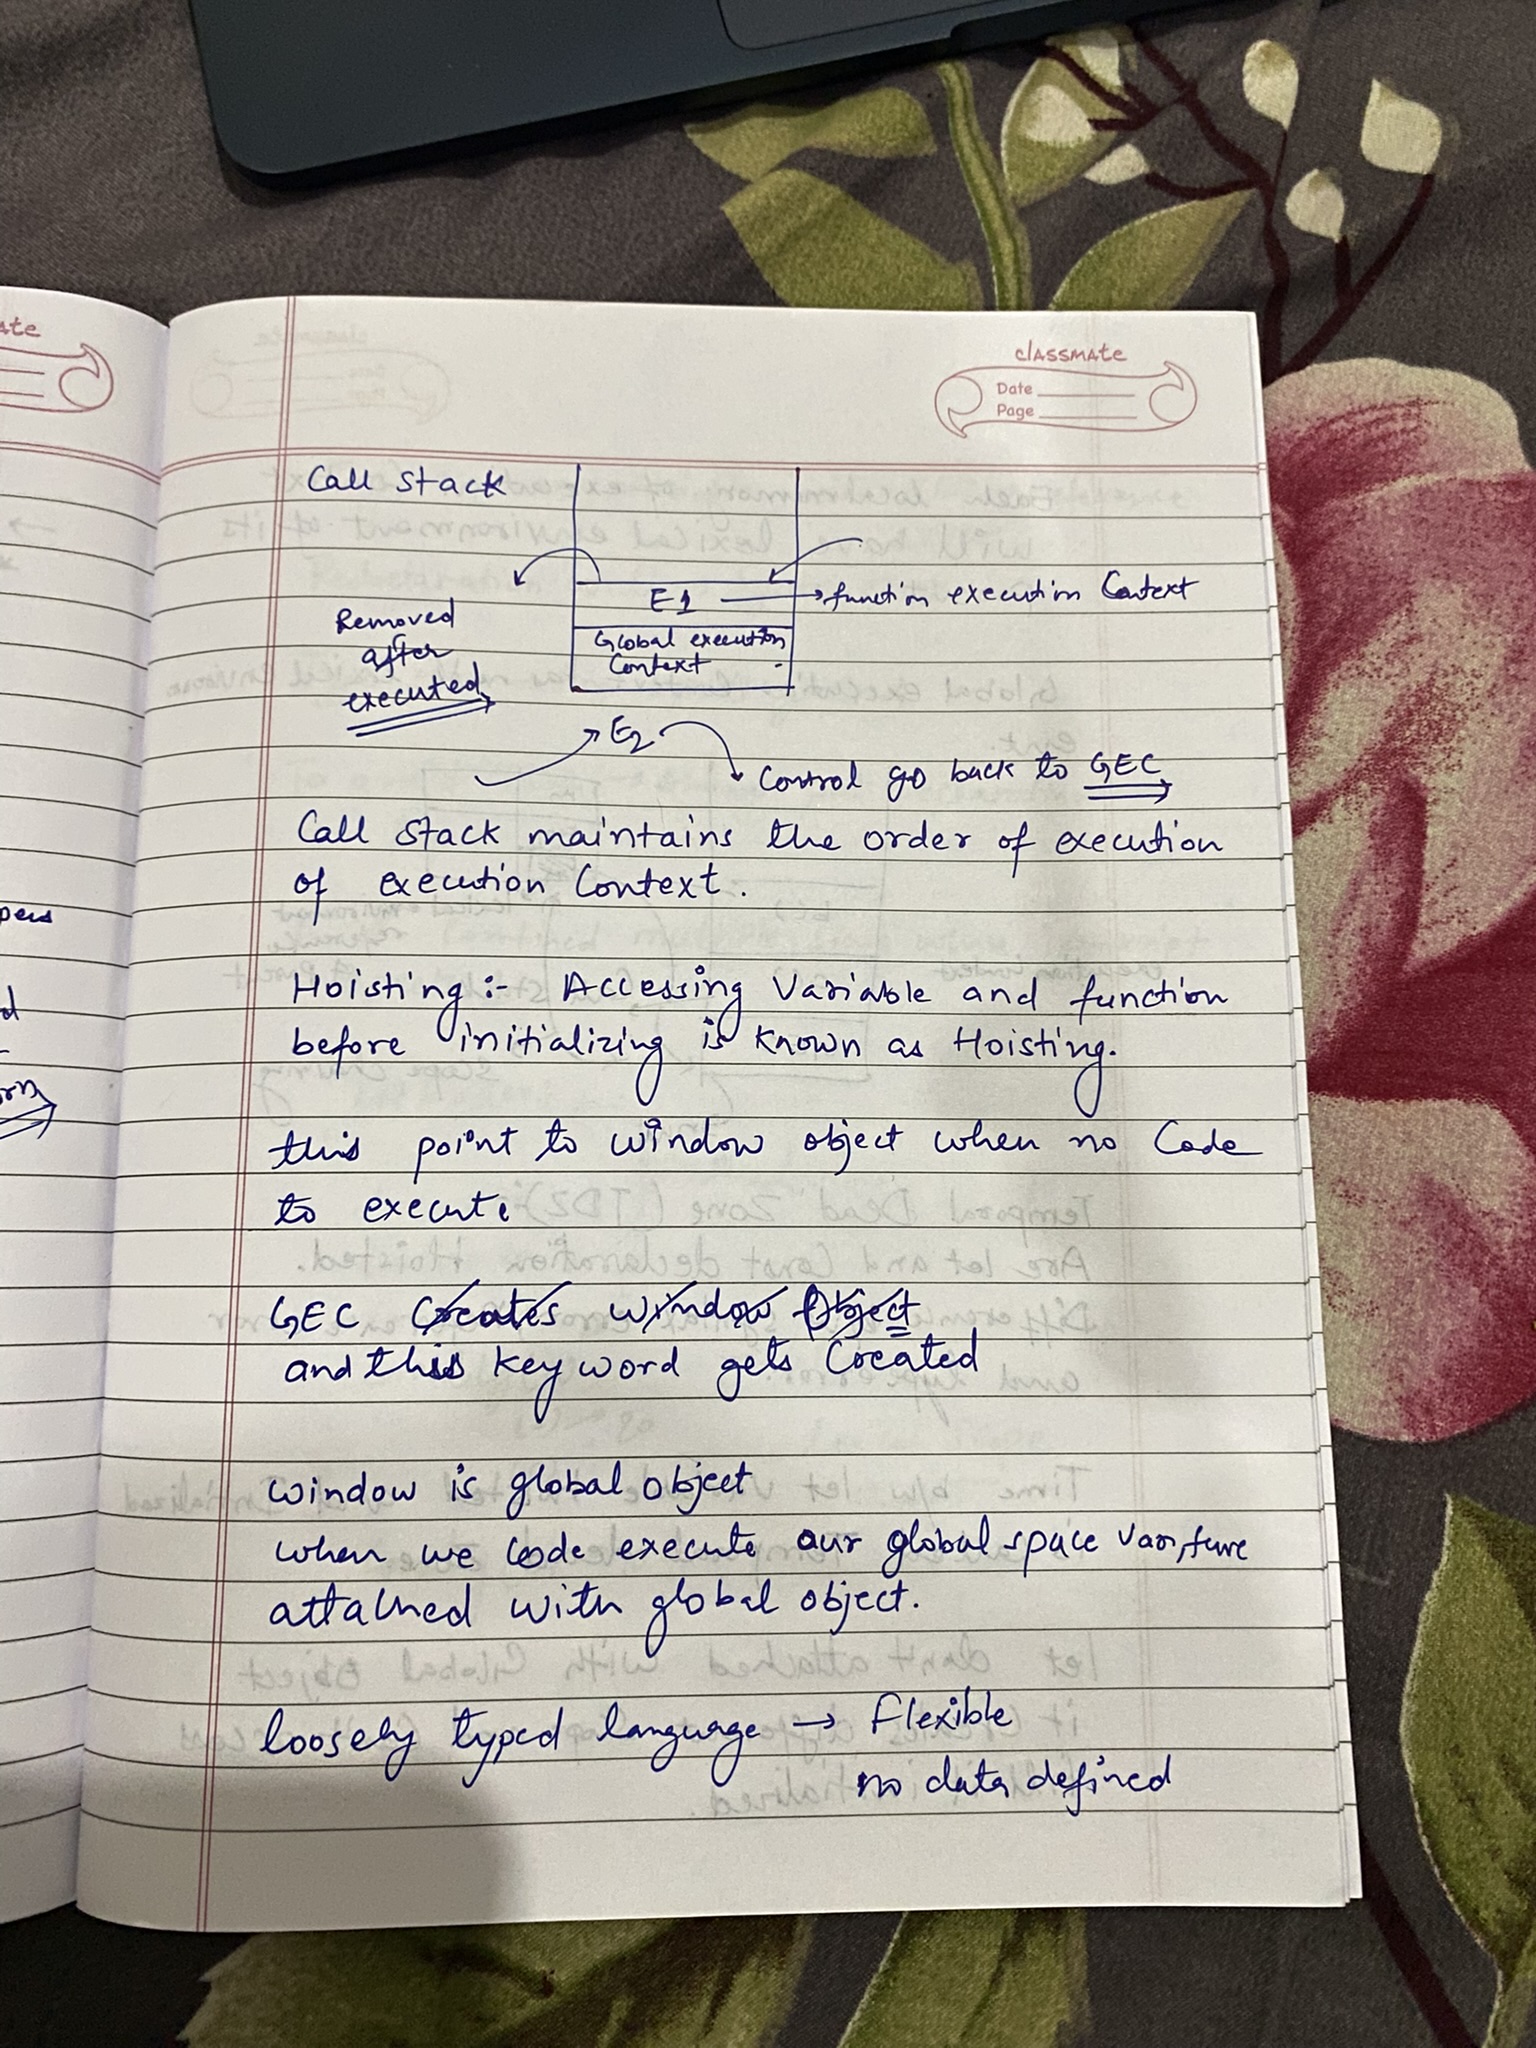 ate
classmate
Date
Page
Call Stack
E1 → function execution Context
Removed
after
executed
Global execution
Context
E2
Control go back to GEC
Call Stack maintains the order of execution
of execution Context.
Hoisting :- Accessing Variable and function
before initializing is known as Hoisting.
this point to window object when no Code
to execute
GEC Creates window Object
and this keyword gets Created
window is global object
when we code execute our global space var,
attached with global object.
loosely typed language → Flexible
no data defined